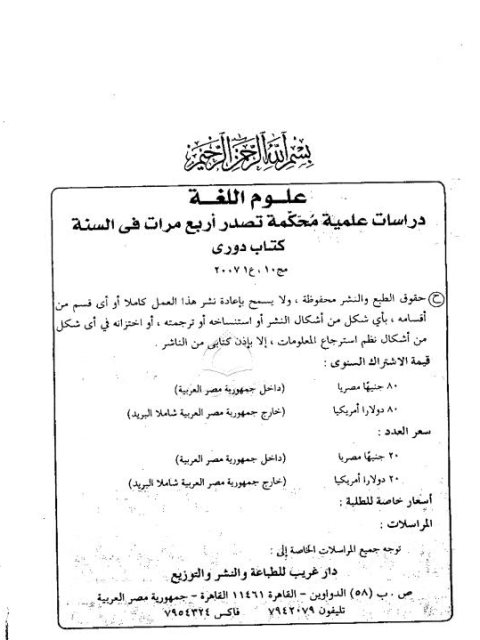 بسم الله الرحمن الرحيم
علـوم اللغـة
دراسات علمية مُحَكَّمة تصدر أربع مرات فى السنة
كتاب دورى
مج١٠، ع١ ٢٠٠٧
ⓒ حقوق الطبع والنشر محفوظة ، ولا يسمح بإعادة نشر هذا العمل كاملا أو أى قسم من
أقسامه ، بأي شكل من أشكال النشر أو استنساخه أو ترجمته ، أو اختزانه في أى شكل
من أشكال نظم استرجاع المعلومات ، إلا بإذن كتابى من الناشر .
قيمة الاشتراك السنوى :
٨٠ جنيهًا مصريا (داخل جمهورية مصر العربية)
٨٠ دولارا أمريكيا (خارج جمهورية مصر العربية شاملا البريد)
سعر العدد :
٢٠ جنيهًا مصريا (داخل جمهورية مصر العربية)
٢٠ دولارا أمريكيا (خارج جمهورية مصر العربية شاملا البريد)
أسعار خاصة للطلبة :
المراسلات :
توجه جميع المراسلات الخاصة إلى :
دار غريب للطباعة والنشر والتوزيع
ص . ب (٥٨) الدواوين - القاهرة ١١٤٦١ القاهرة - جمهورية مصر العربية
تليفون ٧٩٤٢٠٧٩ فاكس ٧٩٥٤٣٢٤